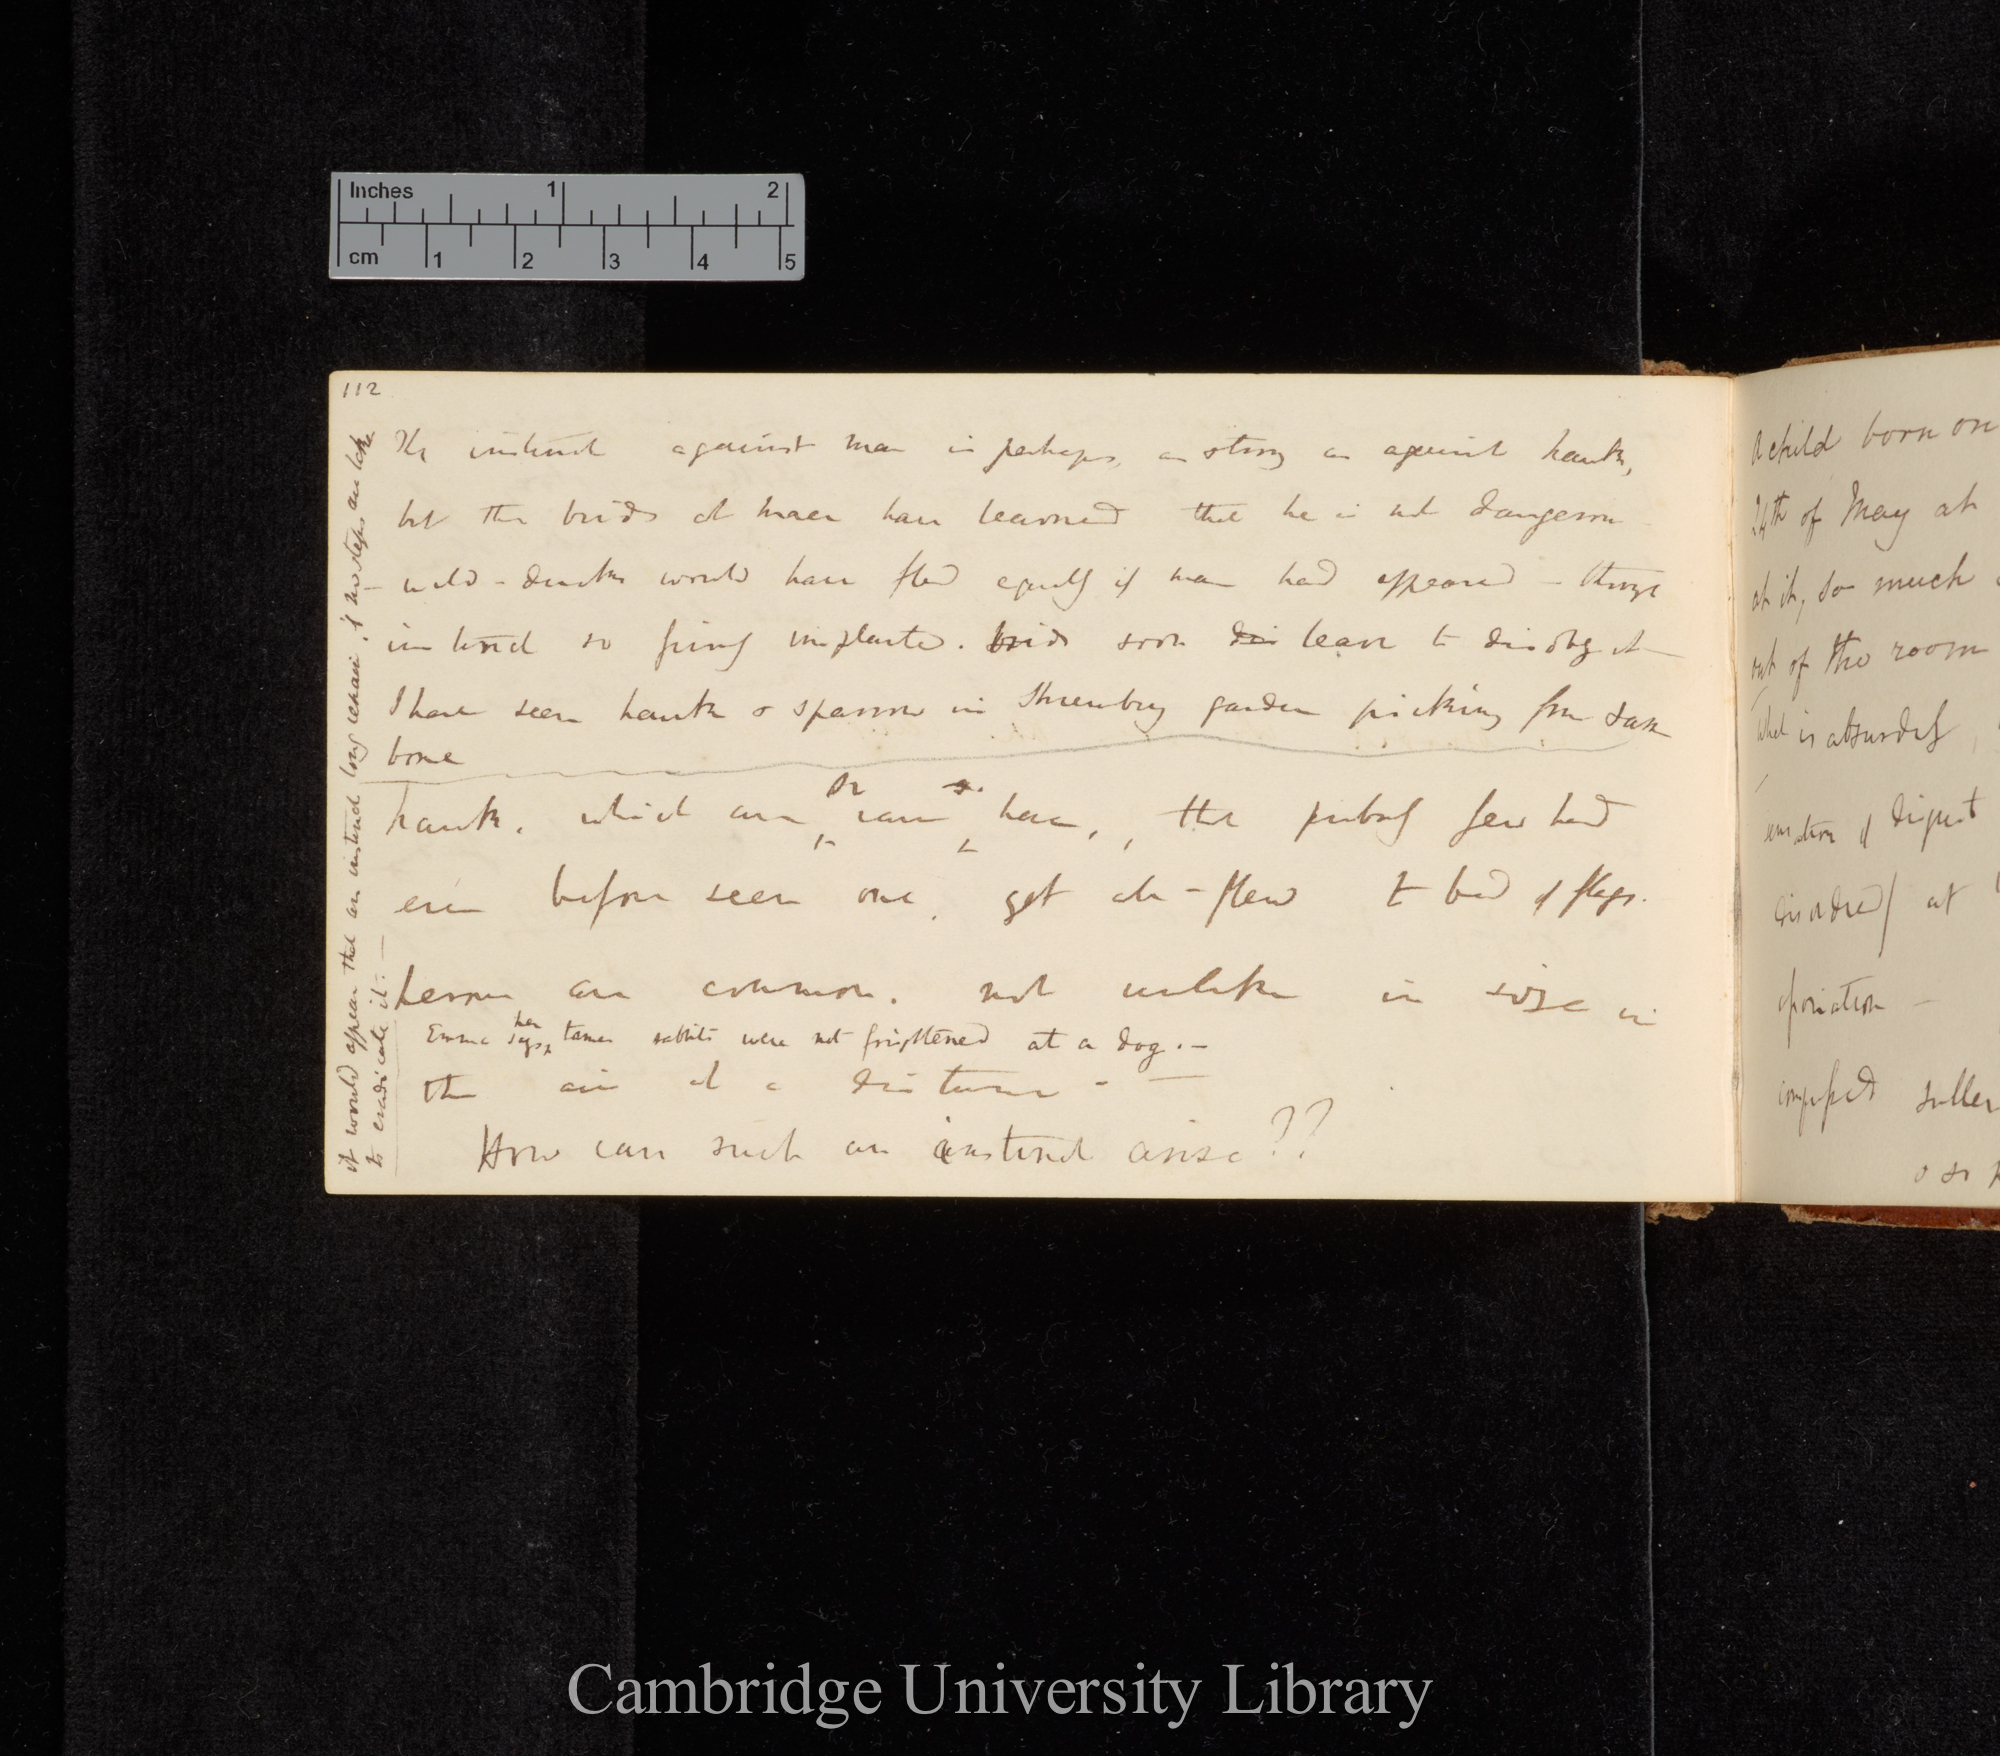 Inches 1 2
cm 1 2 3 4 5
112
The instinct against man is perhaps, as strong as against hawks,
but the birds at Maer have learned that he is not dangerous
– wild-ducks would have fled equally if man had appeared – though
instinct so firmly implanted. birds soon dis learn to disobey it –
I have seen hawk & sparrow in Shrewsbury garden picking from same
bone
hawk. which are so rare here, that probably few had
ever before seen one, yet all flew to bed of flags.
herons are common. not unlike in size in
Emma says her tame rabbits were not frightened at a dog. –
the air at a distance – —
How can such an instinct arise??
it would appear that an instinct long remain, if no steps are take
to eradicate it. –
A child born on
24th of May at
at it, so much
out of the room
what is absurdly
sensation of disgust
at
compressed
Cambridge University Library